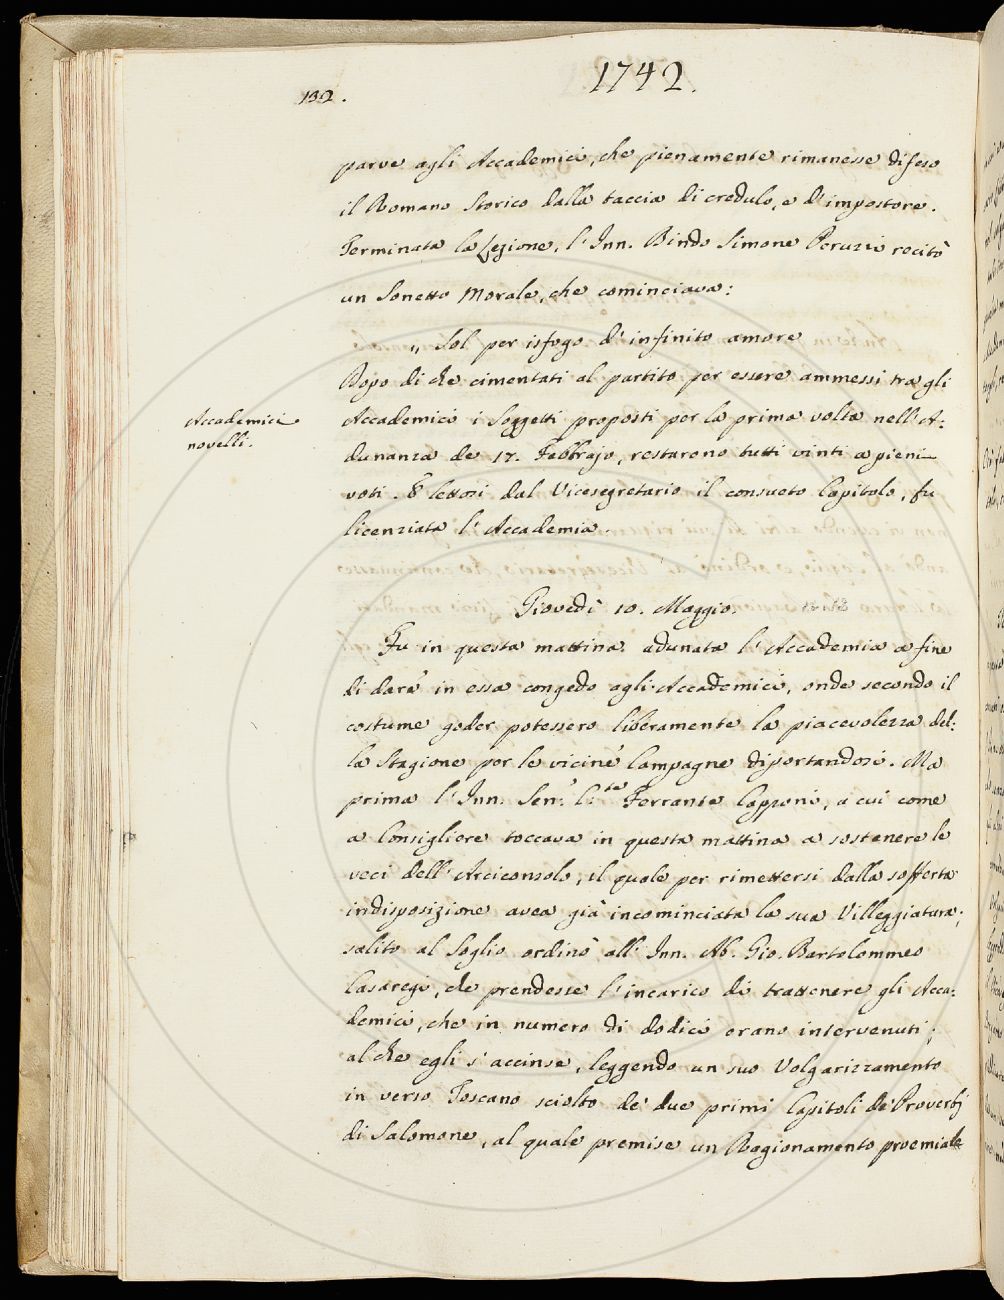 132.
1742.
parve agli Accademici, che pienamente rimanesse difeso
il Romano Storico dalla taccia di credulo, e d'impostore.
Terminata la Lezione, l'Inn. Bindo Simone Peruzzi recitò
un Sonetto Morale, che cominciava:
„ Sol per isfogo d'infinito amore
Dopo di che cimentati al partito per essere ammessi tra gli
Accademici
novelli.
Accademici i Soggetti proposti per la prima volta nell'A:
dunanza de 17. Febbrajo, restarono tutti vinti a pieni
voti. E lettosi dal Vicesegretario il consueto Capitolo, fu
licenziata l'Accademia.
Giovedì 10. Maggio.
Fu in questa mattina adunata l'Accademia a fine
di dare in essa congedo agli Accademici, onde secondo il
costume goder potessero liberamente la piacevolezza del:
la Stagione per le vicine Campagne diportandosi. Ma
prima l'Inn. Sen.e C.te Ferrante Capponi, a cui come
a Consigliere toccava in questa mattina a sostenere le
veci dell'Arciconsolo, il quale per rimettersi dalla sofferta
indisposizione avea già incominciata la sua Villeggiatura;
salito al Soglio ordinò all'Inn. Ab. Gio. Bartolommeo
Casaregi, che prendesse l'incarico di trattenere gli Acca:
demici, che in numero di dodici erano intervenuti;
al che egli s'accinse, leggendo un suo Volgarizzamento
in verso Toscano sciolto de' due primi Capitoli de' Proverbj
di Salomone, al quale premise un Ragionamento proemiale